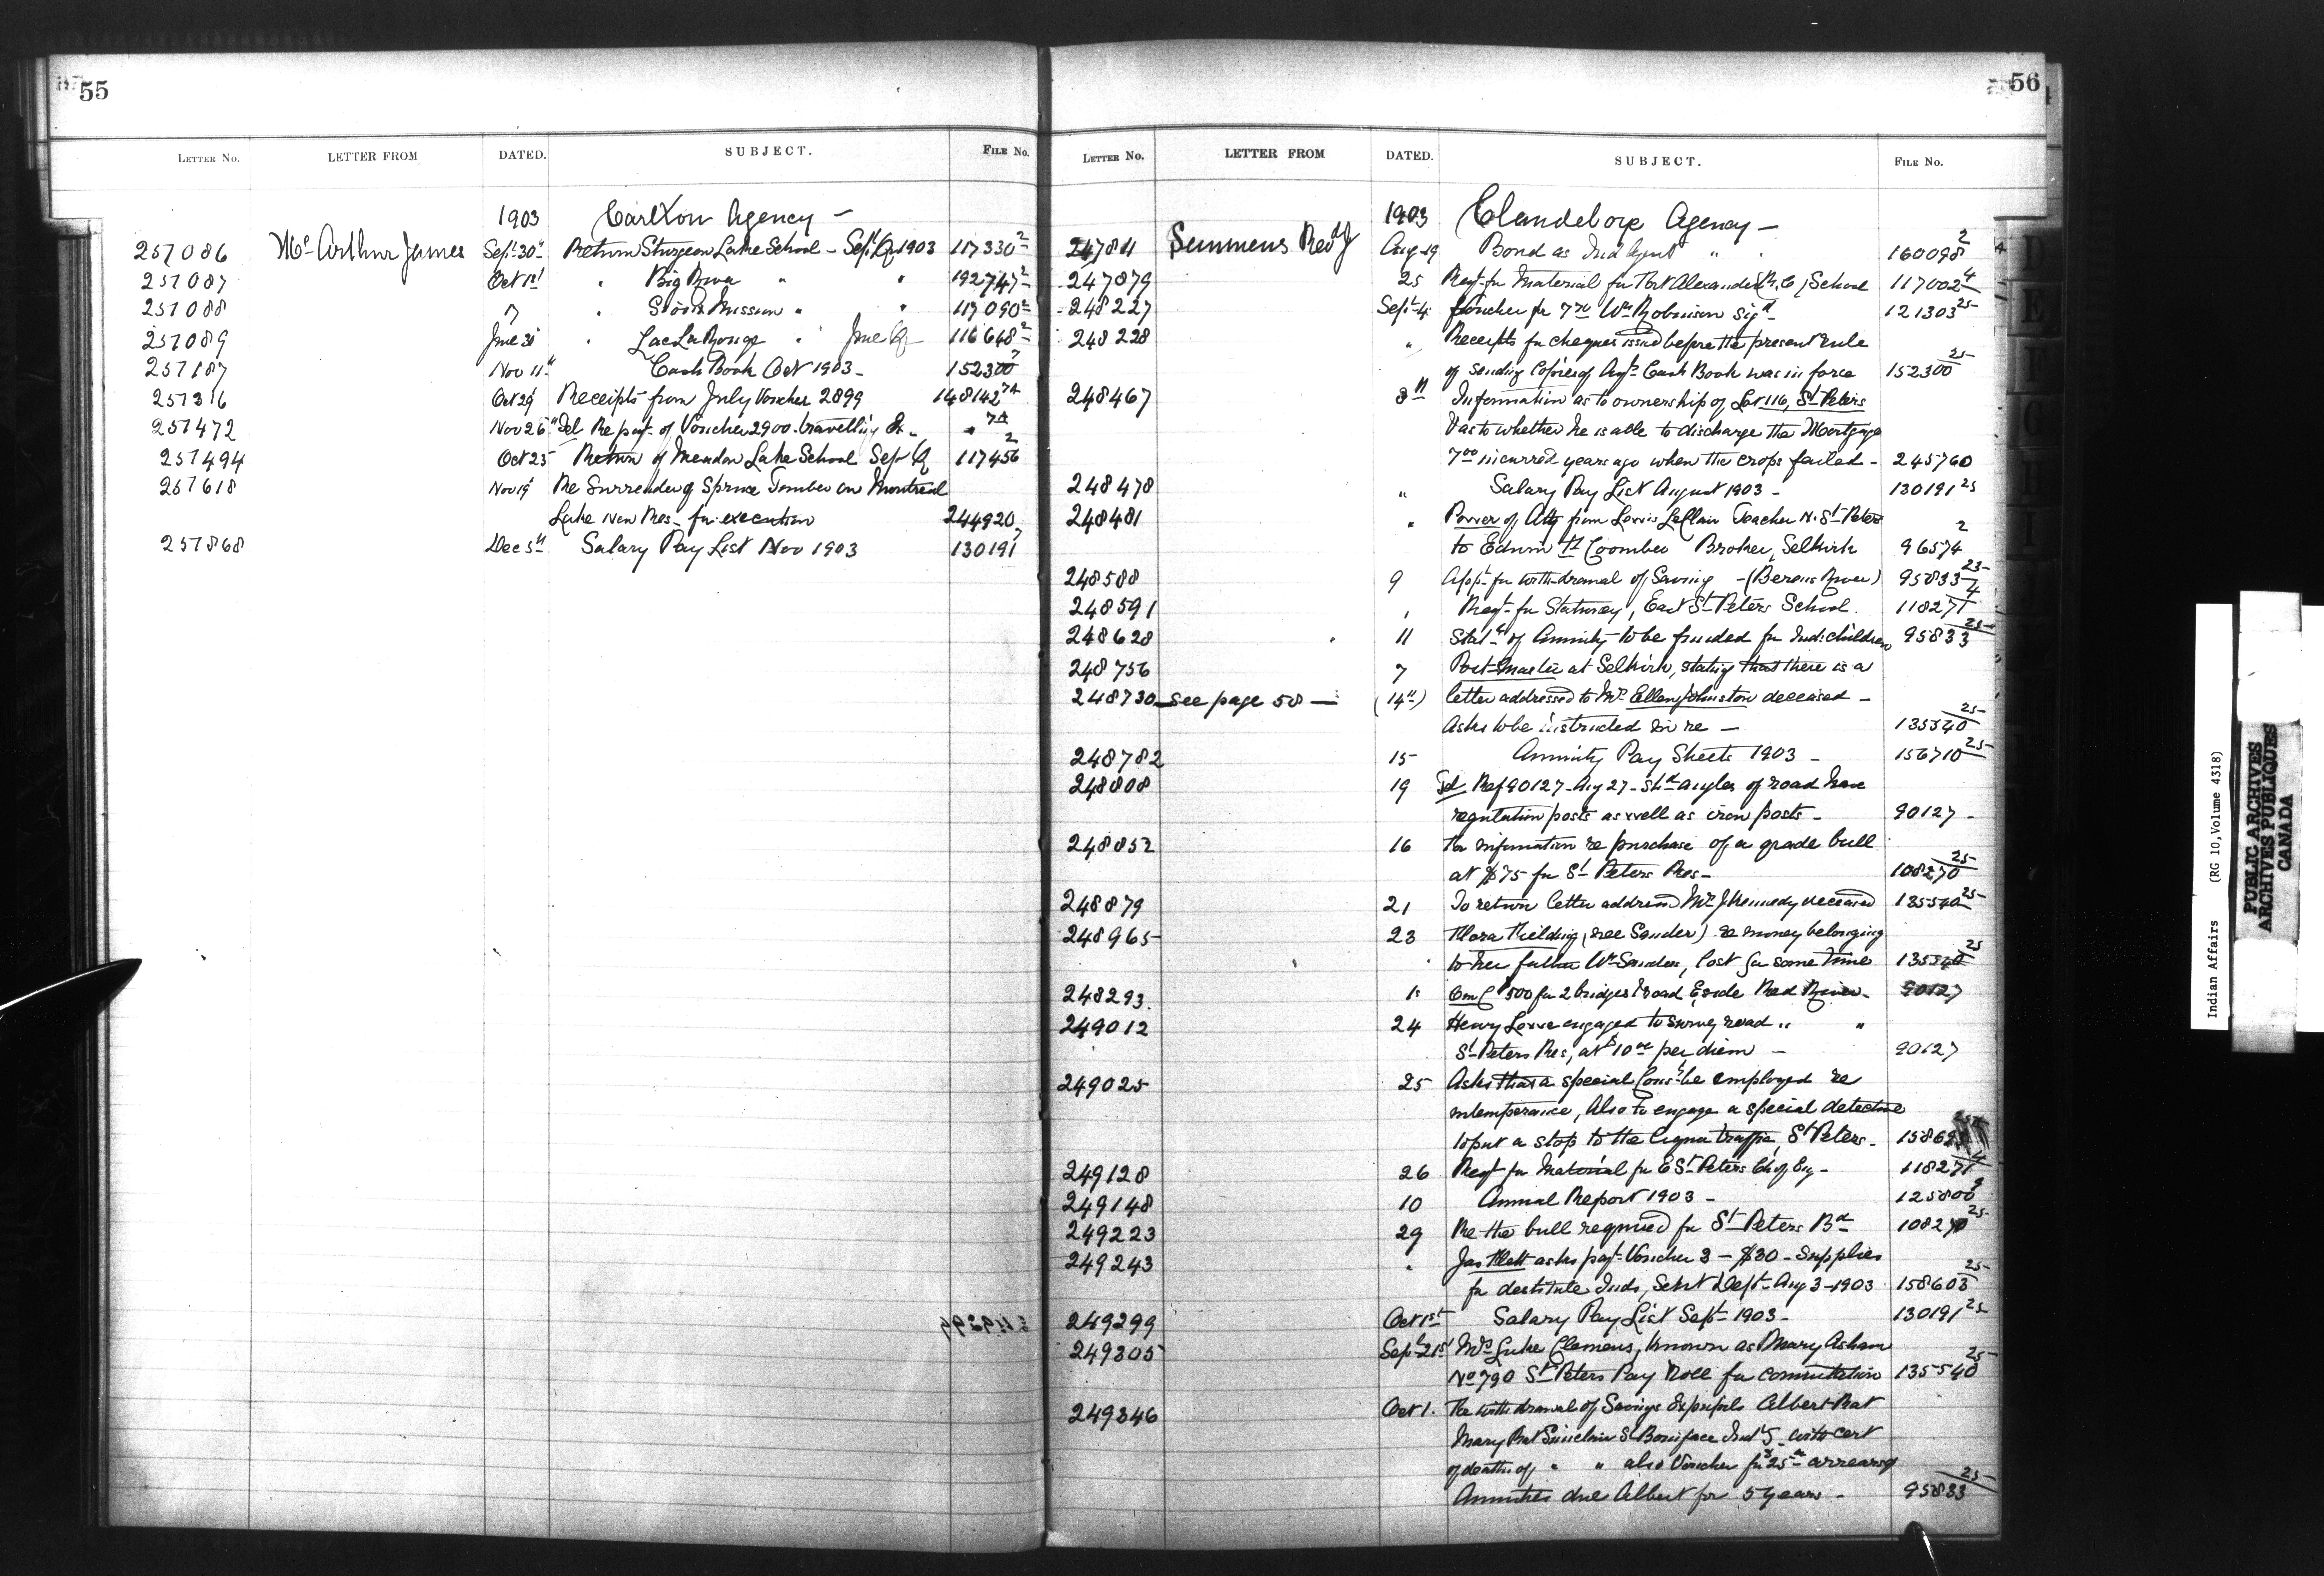 55
LETTER No. LETTER FROM DATED. SUBJECT. FILE No.
1903 Carlton Agency –
257086 Mc Arthur James Sept 30" Return Sturgeon Lake School – Sept Qr 1903 117330 2
257087 Oct 1st " Big River " " 192747 2
257088 7 " Sioux Mission " " 117090 2
257089 June 30 " Lac La Ronge " June Qr 116648 2
257187 Nov 11" Cash Book Oct 1903 – 152300 7
257316 Oct 29 Receipts from July Voucher 2899 148142 7A
257472 Nov 26" Tel Re payt of Voucher 2900 travelling Ex – " 7A
257494 Oct 25 Return of Meadow Lake School Sept Q 117456 2
257618 Nov 19 Re Surrender of Spruce Timber on Montreal
Lake New Res – for execution 244920
257868 Dec 5th Salary Pay List Nov 1903 130191 7
56
LETTER No. LETTER FROM DATED. SUBJECT. FILE No.
1903 Clandeboye Agency –
247811 Semmens Revd J Aug 19 Bond as Ind Agent " " 160098 2
247879 25 Reqt for Material for Fort Alexander (R.C.) School 117002 4
248227 Sept 4 Voucher for 7 70 Wm Robinson Sigd – 121303 25
248228 " Receipts for cheques issued before the present rule
of sending Copies of Agts Cash Book was in force 152300 25
248467 8" Information as to ownership of Lot 116, St Peters
& as to whether he is able to discharge the Mortgage
7 00 incurred years ago when the crops failed – 245760
248478 " Salary Pay List August 1903 – 130191 25
248481 " Power of Atty from Lewis LeClair Teacher N. St Peters
to Edwin H Coomber Broker, Selkirk 96574 2
248588 9 Appn for withdrawal of Saving – (Berens River) 95833 25
248591 " Reqt for Stationery, East St Peters School. 118271 4
248628 11 Statt of Annuity to be funded for Ind: children 95833 25
248756 7 Post-Master at Selkirk, stating that there is a
248730 – see page 58 – (14th) letter addressed to Mrs Ellen Johnston deceased –
Asks to be instructed in re – 135540 25
248782 15 Annuity Pay Sheets 1903 – 156710 25
248808 19 Tel Ref 90127 – Aug 27 – Shd angles of road have
regulation posts as well as iron posts – 90127 –
248852 16 For information re purchase of a grade bull
at $75 for St Peters Res – 108270 25
248879 21 To return letter addressed Mrs J Kennedy deceased 135540 25
248965 23 Flora Fielding, (nee Sander) re money belonging
to her father Wm Sanders, lost for some time 135540 25
248293. 1s $500 for 2 bridges & road E side Red River – 90127
249012 24 Henry Lowe engaged to survey road " "
St Peters Res, at $10 00 per diem – 90127
249025 25 Asks that a special Const be employed re
intemperance, Also to engage a special detective
to put a stop to the liquor traffic, St Peters.
249128 26 Reqt for Material for E St Peters Ch of Eng – 118271 4
249148 10 Annual Report 1903 – 125800 9
249223 29 Re the bull required for St Peters Bd – 108270 25
249243 " Jas Flett asks payt Voucher 3 – $30 – Supplies
for destitute Inds, Sent Dept – Aug 3 – 1903 158603 25
249299 Oct 1st Salary Pay List Sept 1903 – 130191 25
249305 Sept 21st Mrs Luke Clemens, known as Mary Asham
No 790 St Peters Pay Roll for commutation 135540 25
249346 Oct 1. Re withdrawal of Savings Albert Prat
Mary Prat Sinclair St Boniface Ind S – with cert
of death of " " also Voucher for $25 00 arrears of
Annuities due Albert for 5 years – 95833 25
Indian Affairs (RG 10, Volume 4318)
PUBLIC ARCHIVES
ARCHIVES PUBLIQUES
CANADA